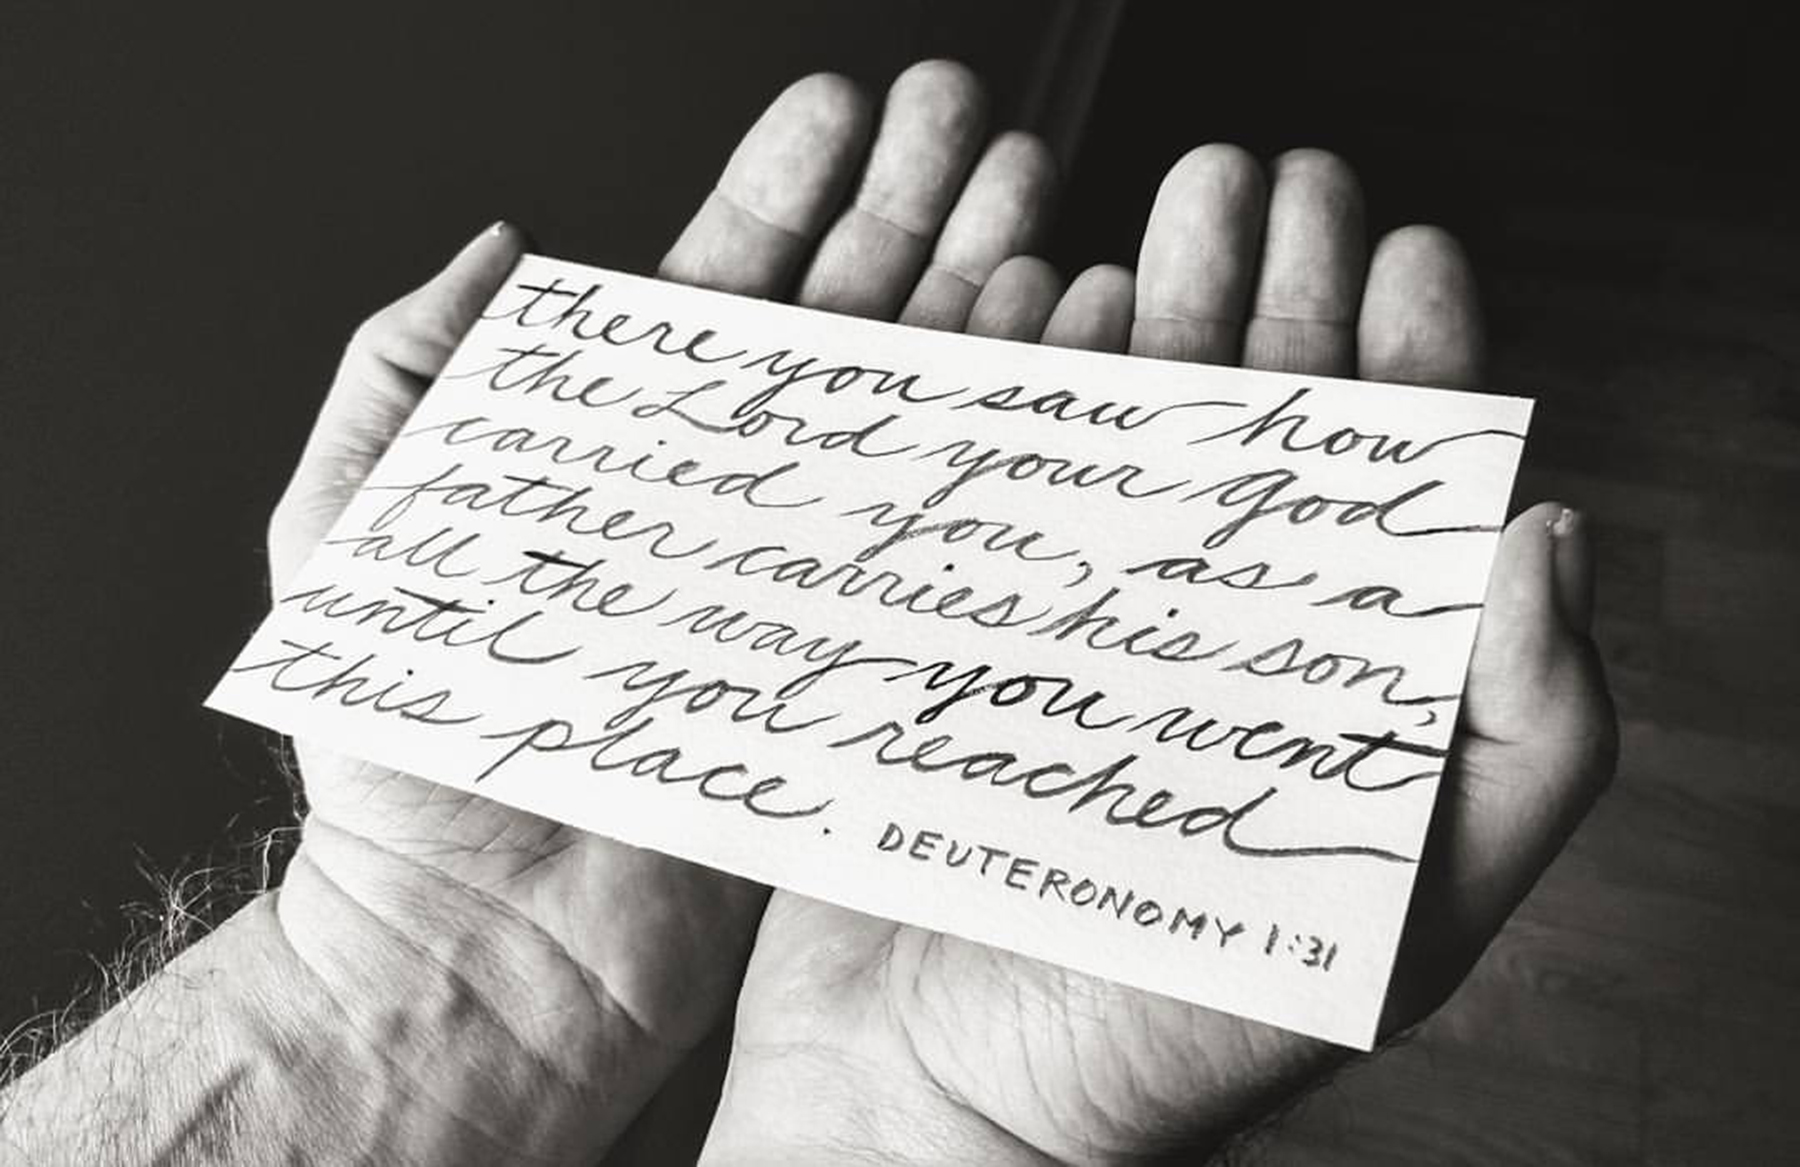 there you saw how
the Lord your God
carried you, as a
father carries his son,
all the way you went
until you reached
this place.
DEUTERONOMY 1:31